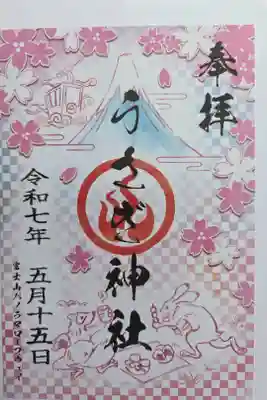 奉拝
うさぎ神社
令和七年 五月十五日
富士山パノラマロープウェイ